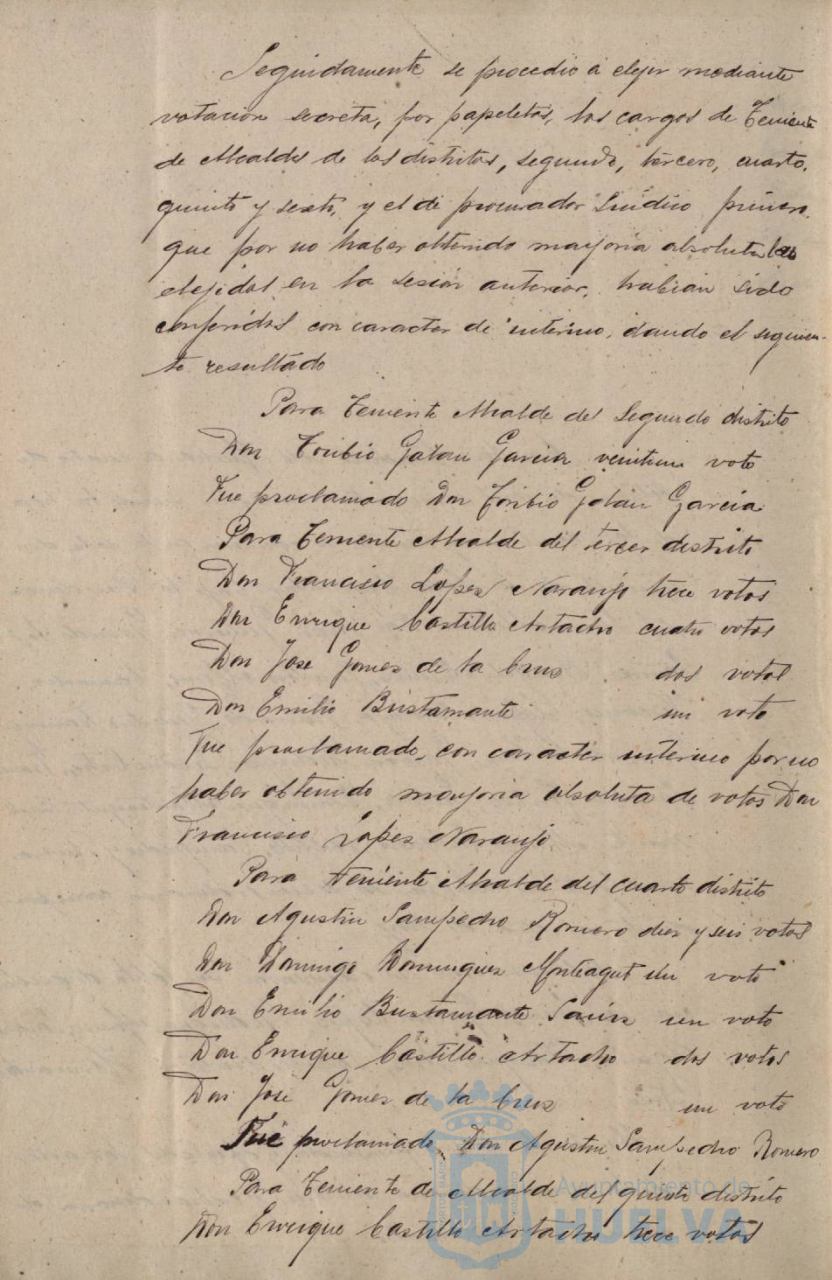 Seguidamente se procedió á elejir mediante
votación secreta, por papeletas, los cargos de Teniente
de Alcaldes de los distritos, segundo, tercero, cuarto,
quinto y sexto, y el de procurador Sindico primero
que por no haber obtenido mayoría absoluta los
elejidos en la sesión anterior, habian sido
conferidos con caracter de interino, dando el siguien-
te resultado
Para Teniente Alcalde del Segundo distrito
Don Toribio Galan Garcia veintiun voto
Fue proclamado Don Toribio Galan Garcia
Para Teniente Alcalde del tercer distrito
Don Francisco Lopez Naranjo trece votos
Don Enrique Castillo Artacho cuatro votos
Don Jose Gomez de la Cruz dos votos
Don Emilio Bustamante un voto
Fue proclamado, con caracter interino por no
haber obtenido mayoria absoluta de votos Don
Francisco Lopez Naranjo
Para teniente Alcalde del cuarto distrito
Don Agustin Sampedro Romero diez y seis votos
Don Domingo Dominguez Monteagut un voto
Don Emilio Bustamante un voto
Don Enrique Castillo Artacho dos votos
Don José Gomez de la Cruz un voto
Fué proclamado Don Agustin Sampedro Romero
Para Teniente de Alcalde del quinto distrito
Don Enrique Castillo Artacho trece votos
Ayuntamiento de
HUELVA